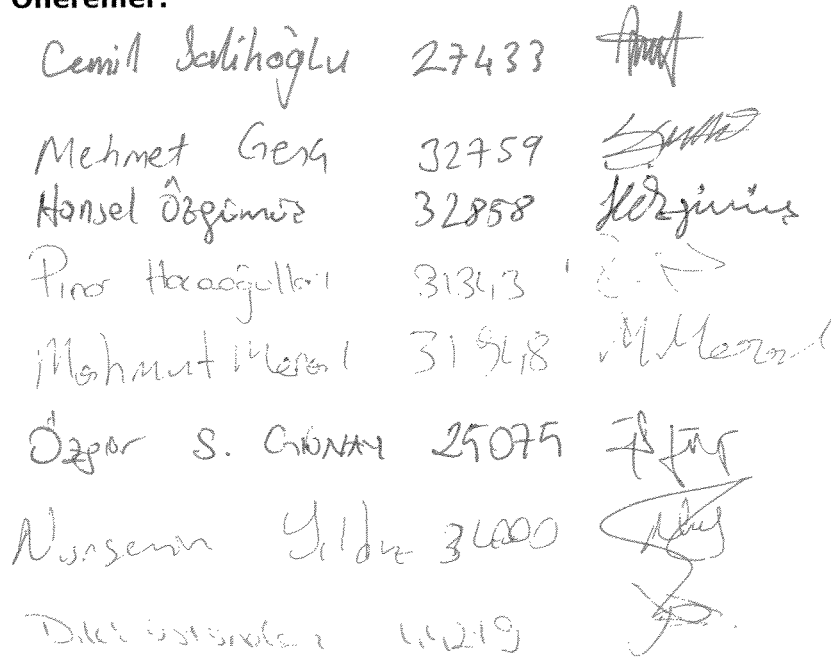 Önerenler:
Cemil Salihoğlu 27433
Mehmet Genç 32759
Hansel Özgümüş 32858
Pınar Hacaoğulları 31343
Mahmut Meral 31948 M Meral
Özgür S. GÜNAY 25075
Nurşenin Yıldız 34000
44219